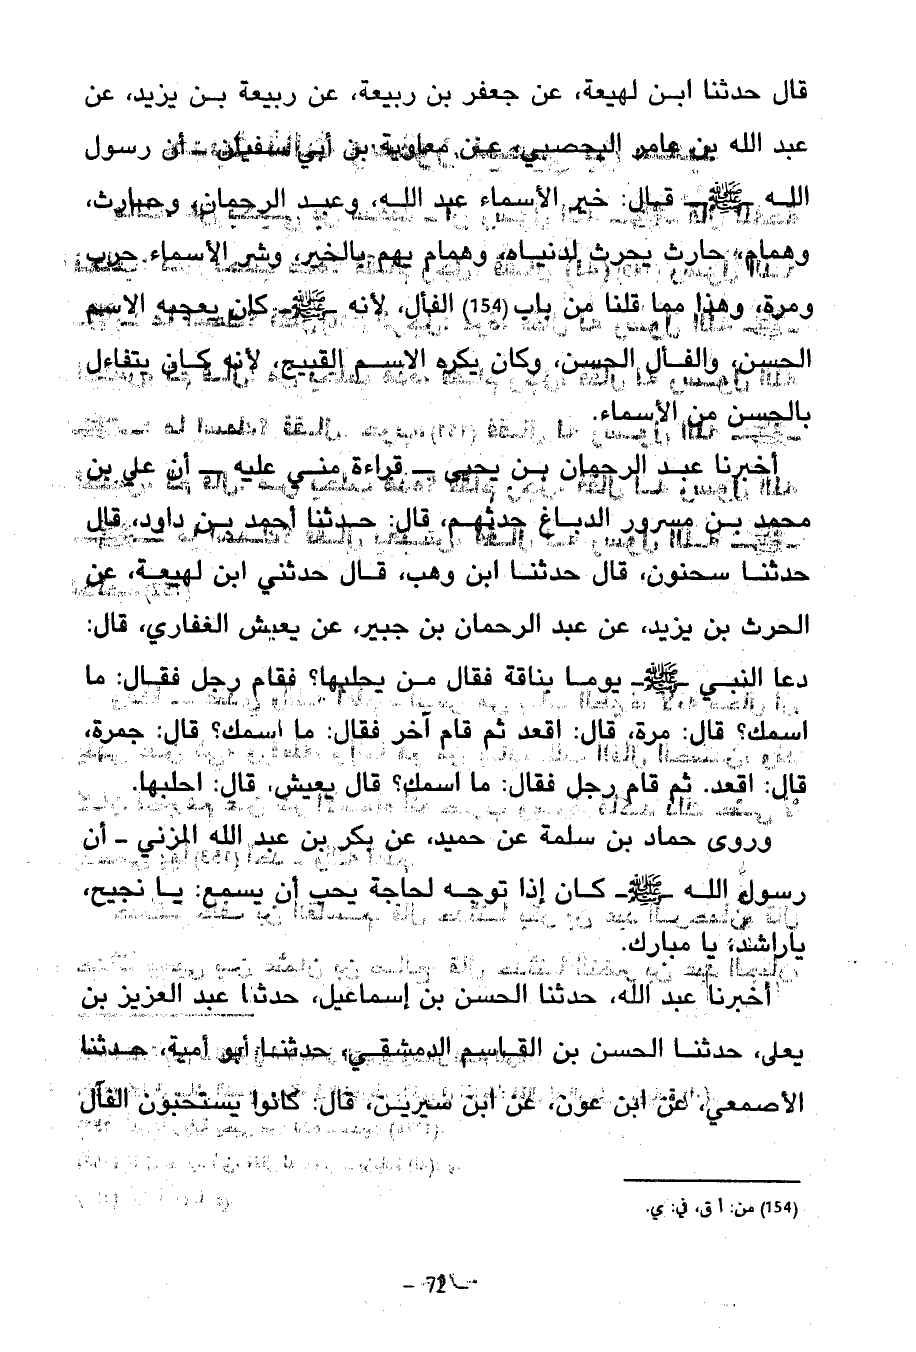 قال حدثنا ابن لهيعة، عن جعفر بن ربيعة، عن ربيعة بن يزيد، عن
عبد الله بن عامر اليحصبي، عن معاوية بن أبي سفيان ـ أن رسول
الله ـ ﷺ ـ قال: خير الأسماء عبد الله، وعبد الرحمان، وحارث،
وهمام، حارث يحرث لدنياه، وهمام يهم بالخير، وشر الأسماء حرب
ومرة، وهذا مما قلنا من باب (154) الفأل، لأنه ـ ﷺ ـ كان يعجبه الاسم
الحسن، والفأل الحسن، وكان يكره الاسم القبيح، لأنه كان يتفاءل
بالحسن من الأسماء.
أخبرنا عبد الرحمان بن يحيى ـ قراءة مني عليه ـ أن علي بن
محمد بن مسرور الدباغ حدثهم، قال: حدثنا أحمد بن داود، قال
حدثنا سحنون، قال حدثنا ابن وهب، قال حدثني ابن لهيعة، عن
الحرث بن يزيد، عن عبد الرحمان بن جبير، عن يعيش الغفاري، قال:
دعا النبي ـ ﷺ ـ يوما بناقة فقال من يحلبها؟ فقام رجل فقال: ما
اسمك؟ قال: مرة، قال: اقعد ثم قام آخر فقال: ما اسمك؟ قال: جمرة،
قال: اقعد. ثم قام رجل فقال: ما اسمك؟ قال يعيش، قال: احلبها.
وروى حماد بن سلمة عن حميد، عن بكر بن عبد الله المزني ـ أن
رسول الله ـ ﷺ ـ كان إذا توجه لحاجة يحب أن يسمع: يا نجيح،
ياراشد، يا مبارك.
أخبرنا عبد الله، حدثنا الحسن بن إسماعيل، حدثنا عبد العزيز بن
يعلى، حدثنا الحسن بن القاسم الدمشقي، حدثنا أبو أمية، حدثنا
الأصمعي، عن ابن عون، عن ابن سيرين، قال: كانوا يستحبون الفأل
(154) من: أ ق، في: ي.
ـ 72 ـ